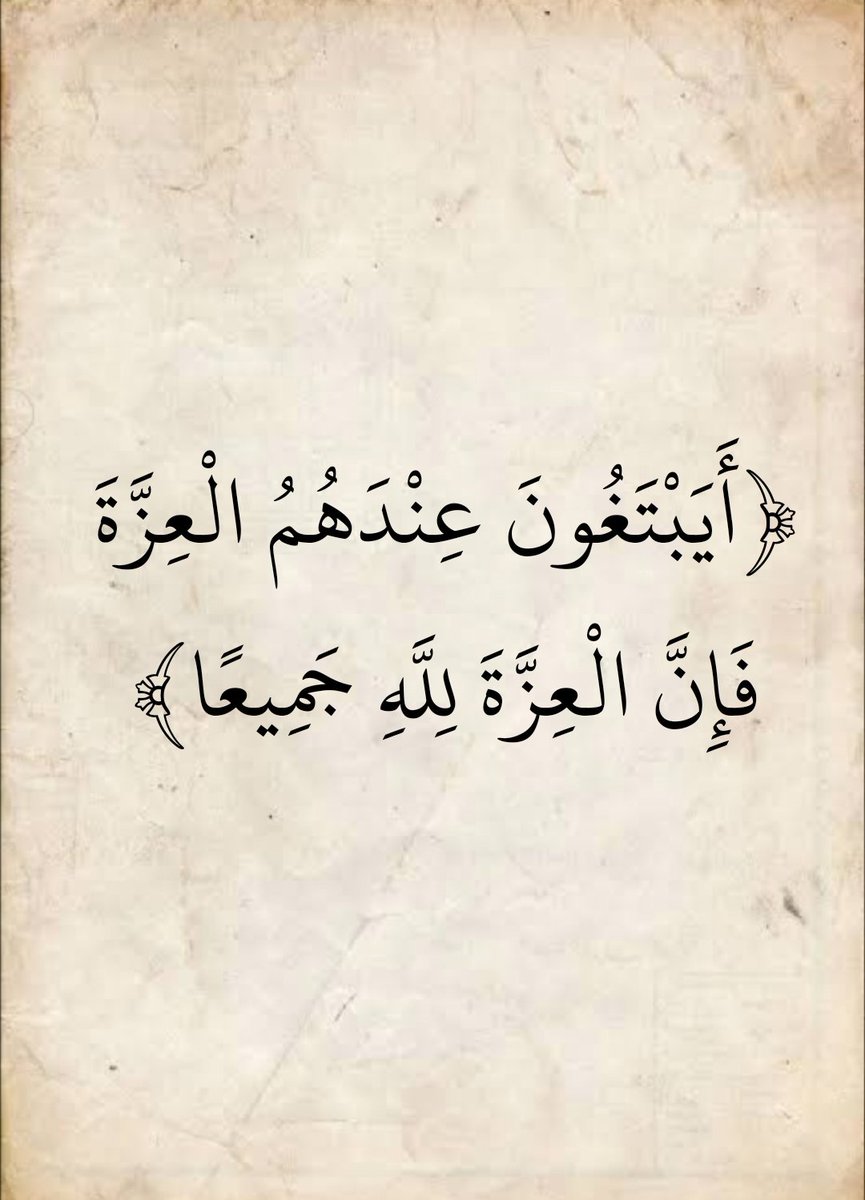 ﴿أَيَبْتَغُونَ عِنْدَهُمُ الْعِزَّةَ
فَإِنَّ الْعِزَّةَ لِلَّهِ جَمِيعًا﴾